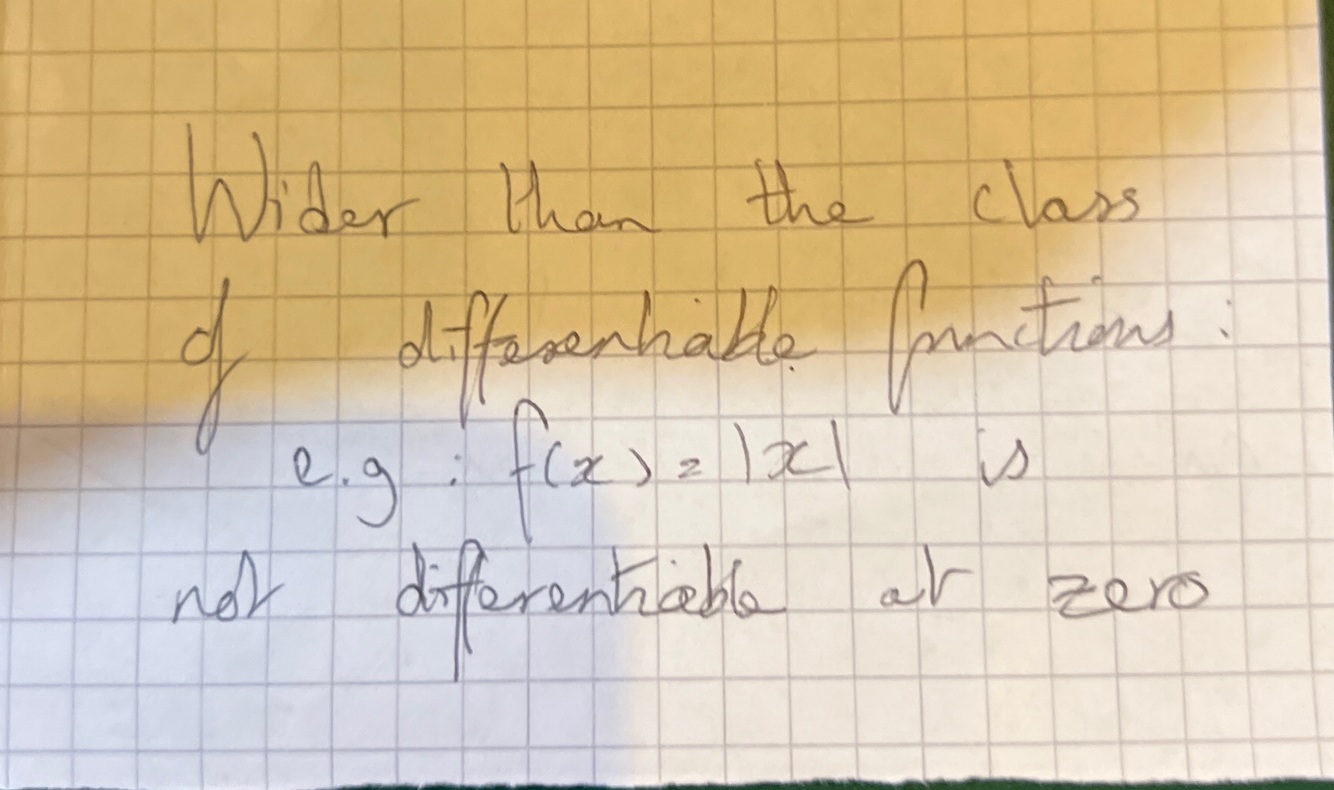 Wider than the class
of differentiable functions :
e.g : f(x) = |x| is
not differentiable at zero